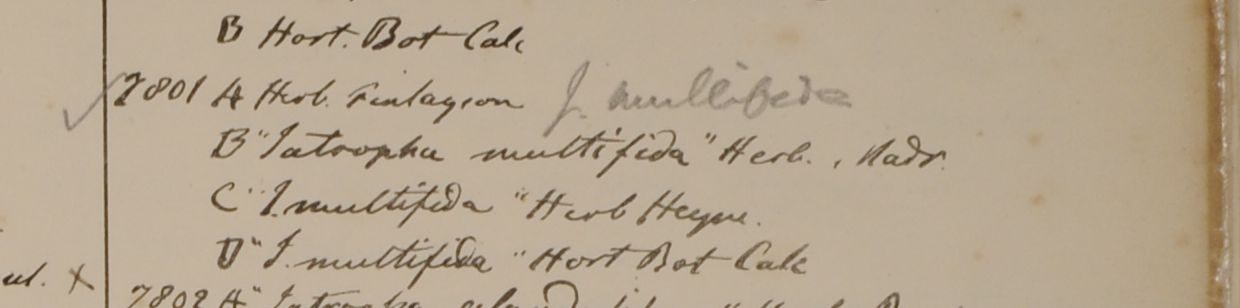 B Hort. Bot Calc
7801 A Herb. Finlayson J. multifida
B "Jatropha multifida" Herb. Madr.
C "J. multifida" Herb Heyne.
D "J. multifida" Hort Bot Calc
ul. x
7802 A "Jatropha